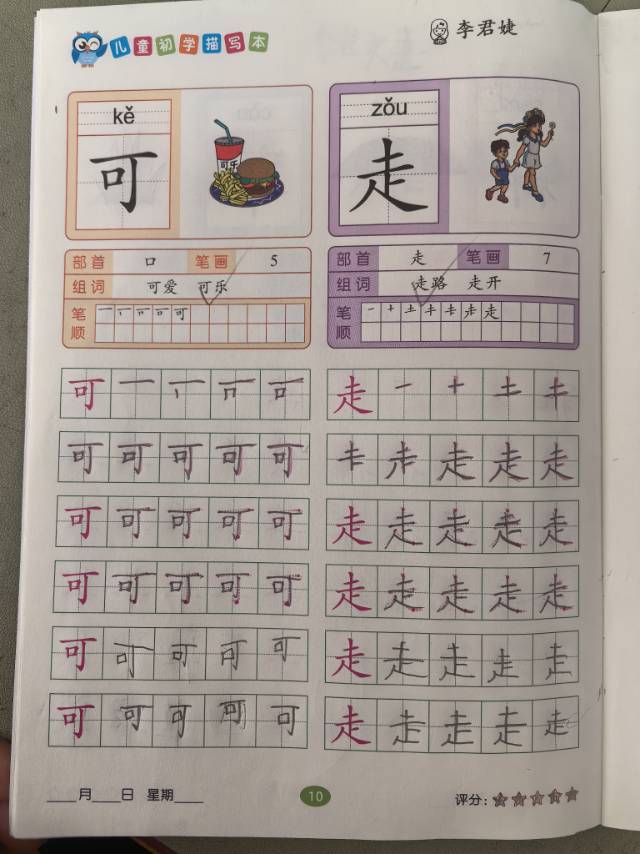 儿童初学描写本
李君婕
kě
可
可乐
部首 口 笔画 5
组词 可爱 可乐
笔顺 可
zǒu
走
部首 走 笔画 7
组词 走路 走开
笔顺 一 十 土 走
可 一
走 一 十
可 可 可 可 可
走 走 走
可 可 可 可 可
走 走 走 走 走
可 可 可 可 可
走 走 走 走 走
可 可 可 可 可
走 走 走 走 走
可 可 可 可 可
走 走 走 走 走
____月____日 星期____
10
评分: